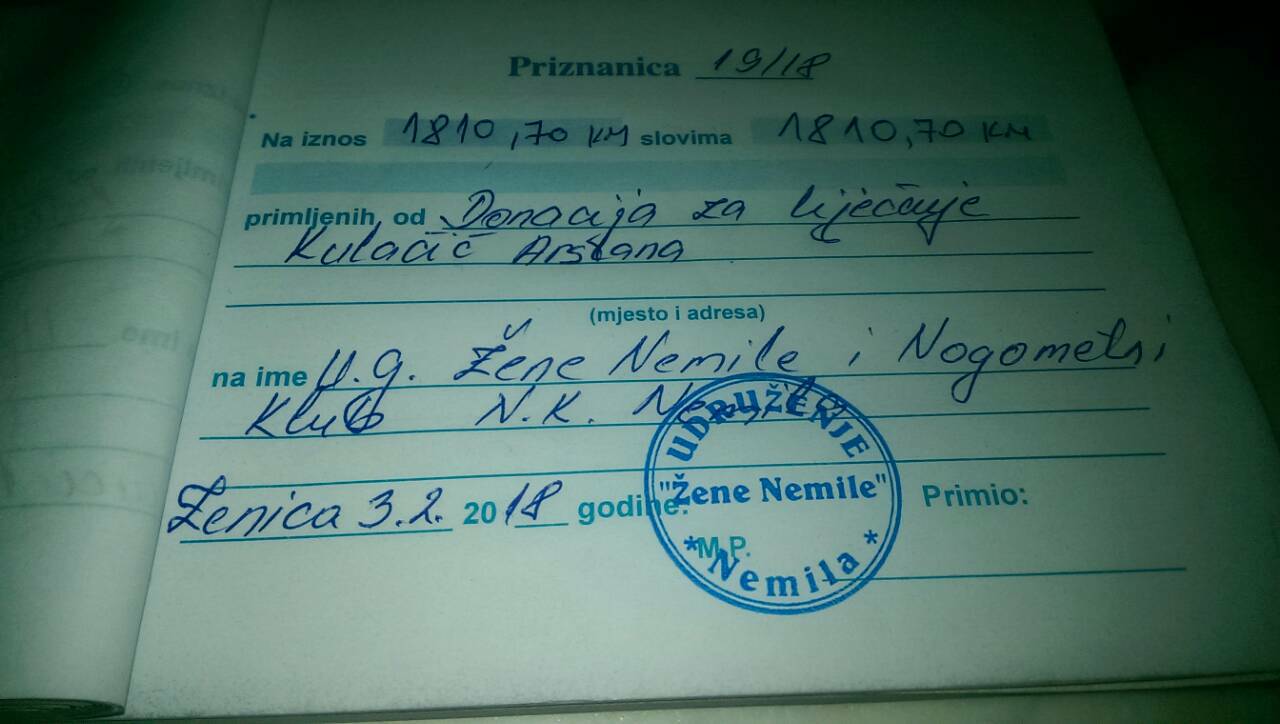 Priznanica 19/18
Na iznos 1810,70 KM slovima 1810,70 KM
primljenih, od Donacija za liječenje
Kulačić Arslana
(mjesto i adresa)
na ime U.G. Žene Nemile i Nogometni
Klub N.K. Nemila
Zenica 3.2. 2018 godine.
Primio:
M.P.
UDRUŽENJE
"Žene Nemile"
* Nemila *